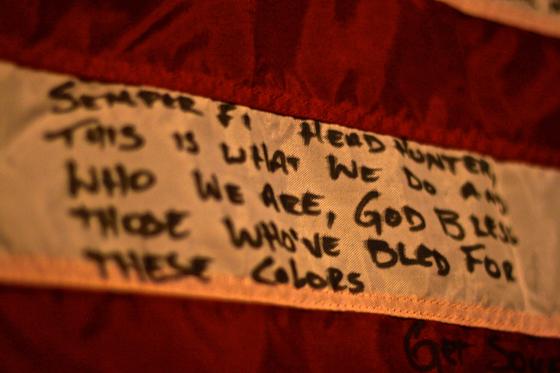 SEMPER FI HEAD HUNTER,
THIS IS WHAT WE DO AND
WHO WE ARE, GOD BLESS
THOSE WHO'VE BLED FOR
THESE COLORS
GET SOME